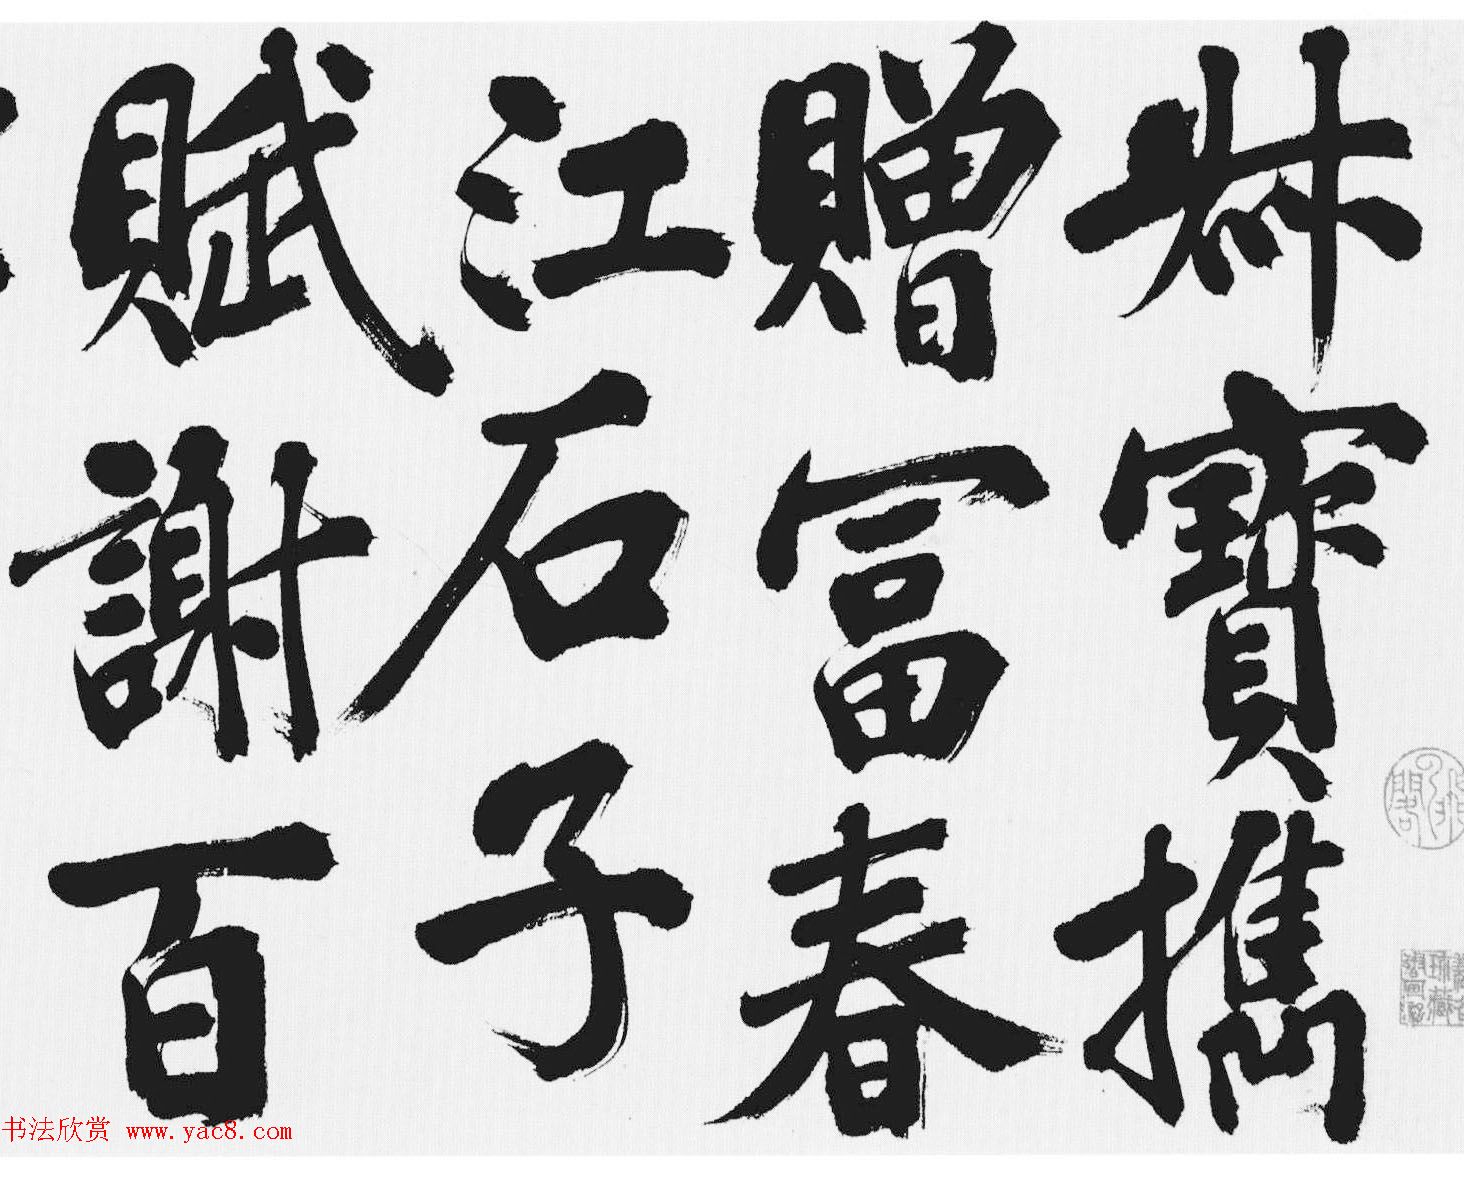 叔寶攜
贈富春
江石子
賦謝百
书法欣赏 www.yac8.com